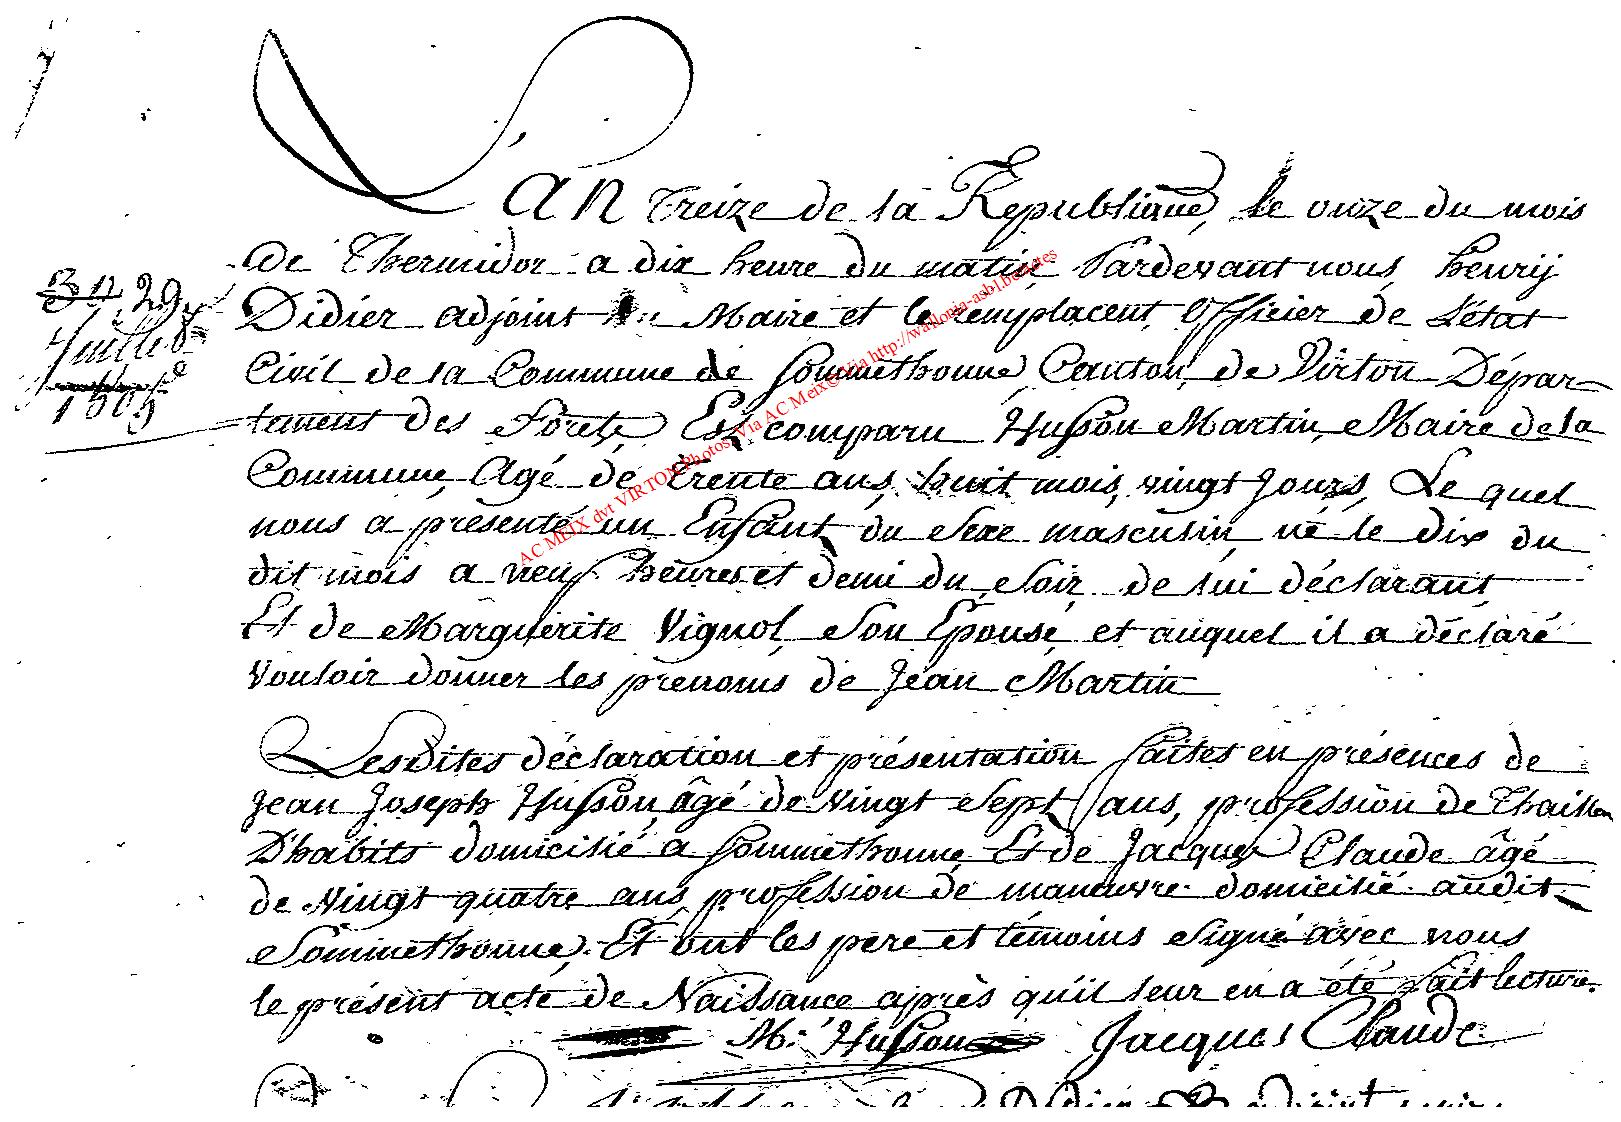 L'an treize de la République, le onze du mois
de Thermidor a dix heure du matin Pardevant nous, henrij
Didier adjoint Maire et le remplacent, Officier de L'état
Civil de la Commune de Sommethonne, Canton de Virton Dépar-
3 29
Juillet
1805
tement des Forêts, Est comparu Husson Martin, Maire de la
Commune, Agé de trente ans, huit mois, vingt Jours, Le quel
nous a présenté un Enfant du Sexe masculin né le dix du
dit mois a neuf heures et demi du Soir de lui déclarant
Et de Marguerite Vignol, Son Epouse, et auquel il a déclaré
Vouloir donner les prenoms de Jean Martin
Lesdites déclaration et présentation faites en présences de
Jean Joseph Husson, âgé de vingt Sept ans, profession de
D'habits domicilié a Sommethonne Et de Jacques Claude âgé
de Vingt quatre ans, profession de manœuvre domicilié audit
Sommethonne, Et ont les pere et témoins Signé avec nous
le présent acte de Naissance après qu'il leur en a été fait lecture.
M. Husson Jacques Claude
Didier
AC MEIX dvt VIRTON Photos Via AC Meix & via http://wallonia-asbl.be/actes